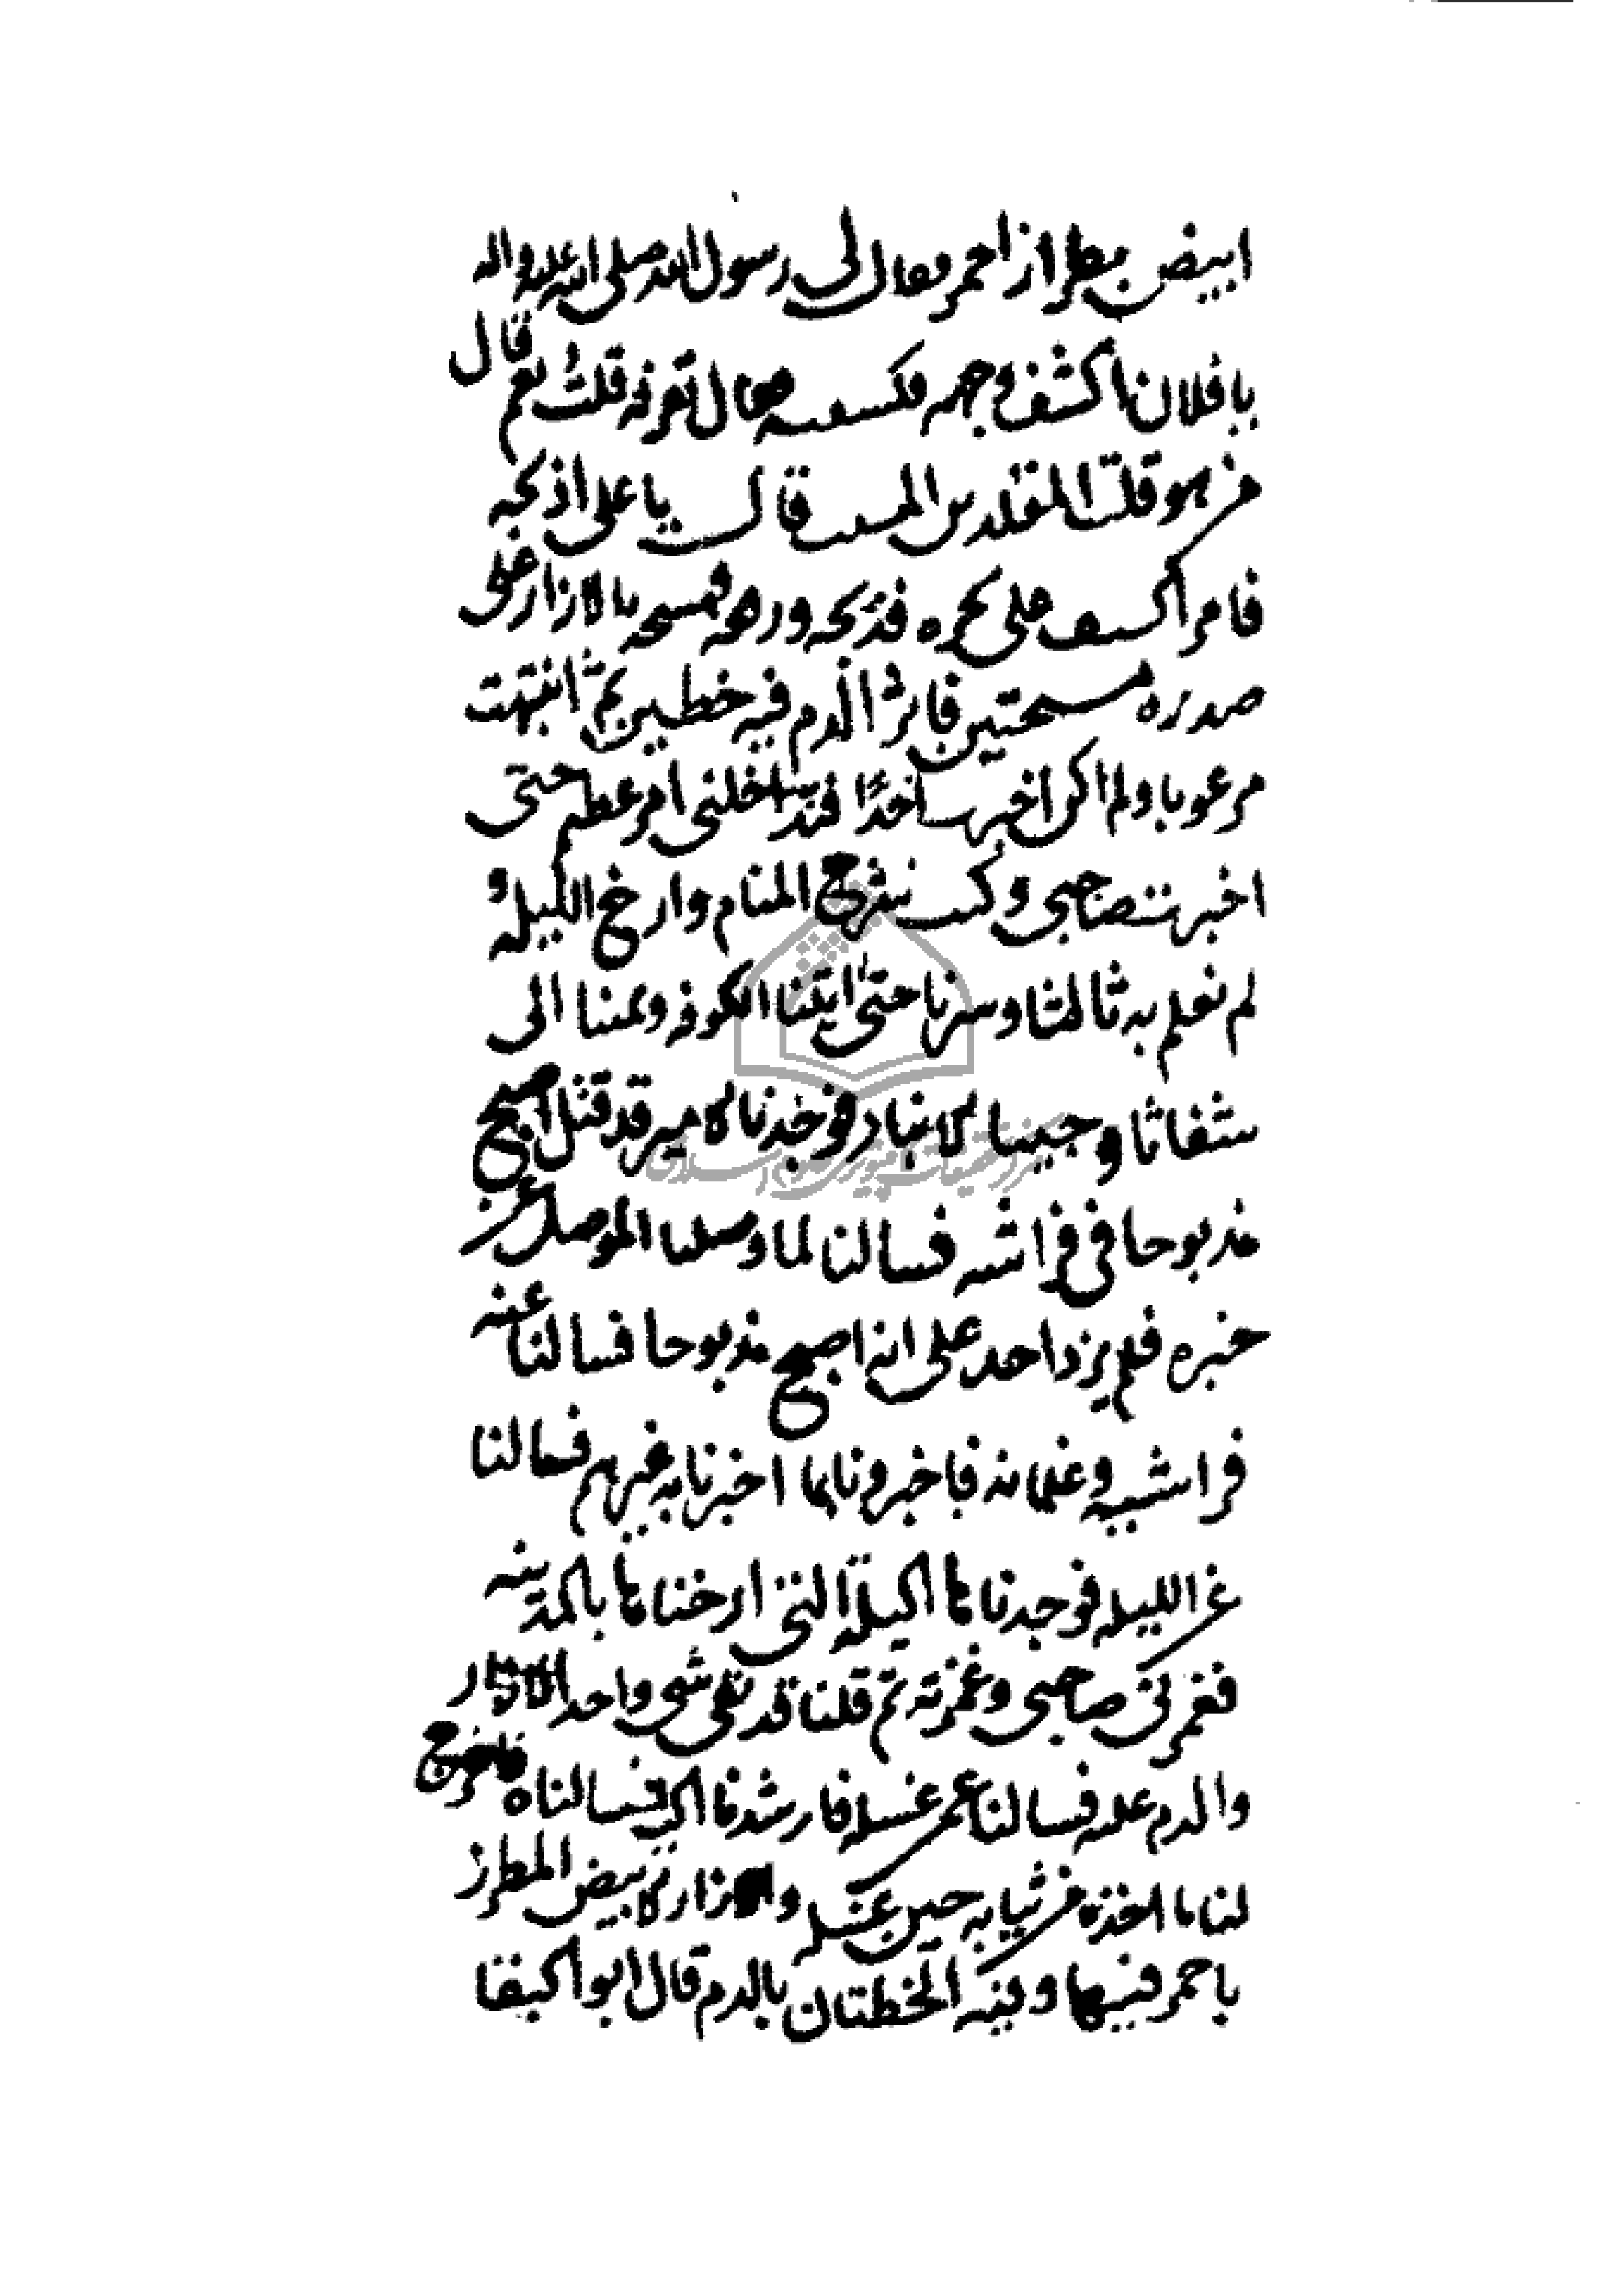 ابيض بطراز احمر وقال لى رسول الله صلى الله عليه واله
يا فلان اكشف وجهه فكشفته فقال تعرفه قلت نعم قال
من هو قلت المقلد بن المسيب قال يا على اذبحه
فامر السيف على نحره فذبحه ورفعه فمسحه بالازار على
صدره مسحتين فاثر الدم فيه خطين ثم انتبهت
مرعوبا ولم اكن اخبر بها احدًا فتداخلنى امر عظيم حتى
اخبرت صاحبى وكتبت شرح المنام وارخ الليله و
لم نعلم به ثالثا وسرنا حتى اتينا الكوفه وتمنا الى
شفاثا وجينا الانبار فوجدنا الامير قد قتل اصبح
مذبوحا فى فراشه فسالنا لما وصلنا الموصل عن
خبره فلم يزد احد على انه اصبح مذبوحا فسالنا عنه
فراشيه وغلمانه فاخبرونا بما اخبرنا به غيرهم فسالنا
عن الليله فوجدناها الليلة التى ارخناها بالمدينه
فغمزنى صاحبى وغمزته ثم قلنا قد بقى شى واحد الازار
والدم عليه فسالنا عمن غسله فارشدنا اليه فسالناه فاخرج
لنا ما اخذه من ثيابه حين غسله والازار الابيض المطرز
باحمر فيها وفيه الخطتان بالدم قال ابو البقا